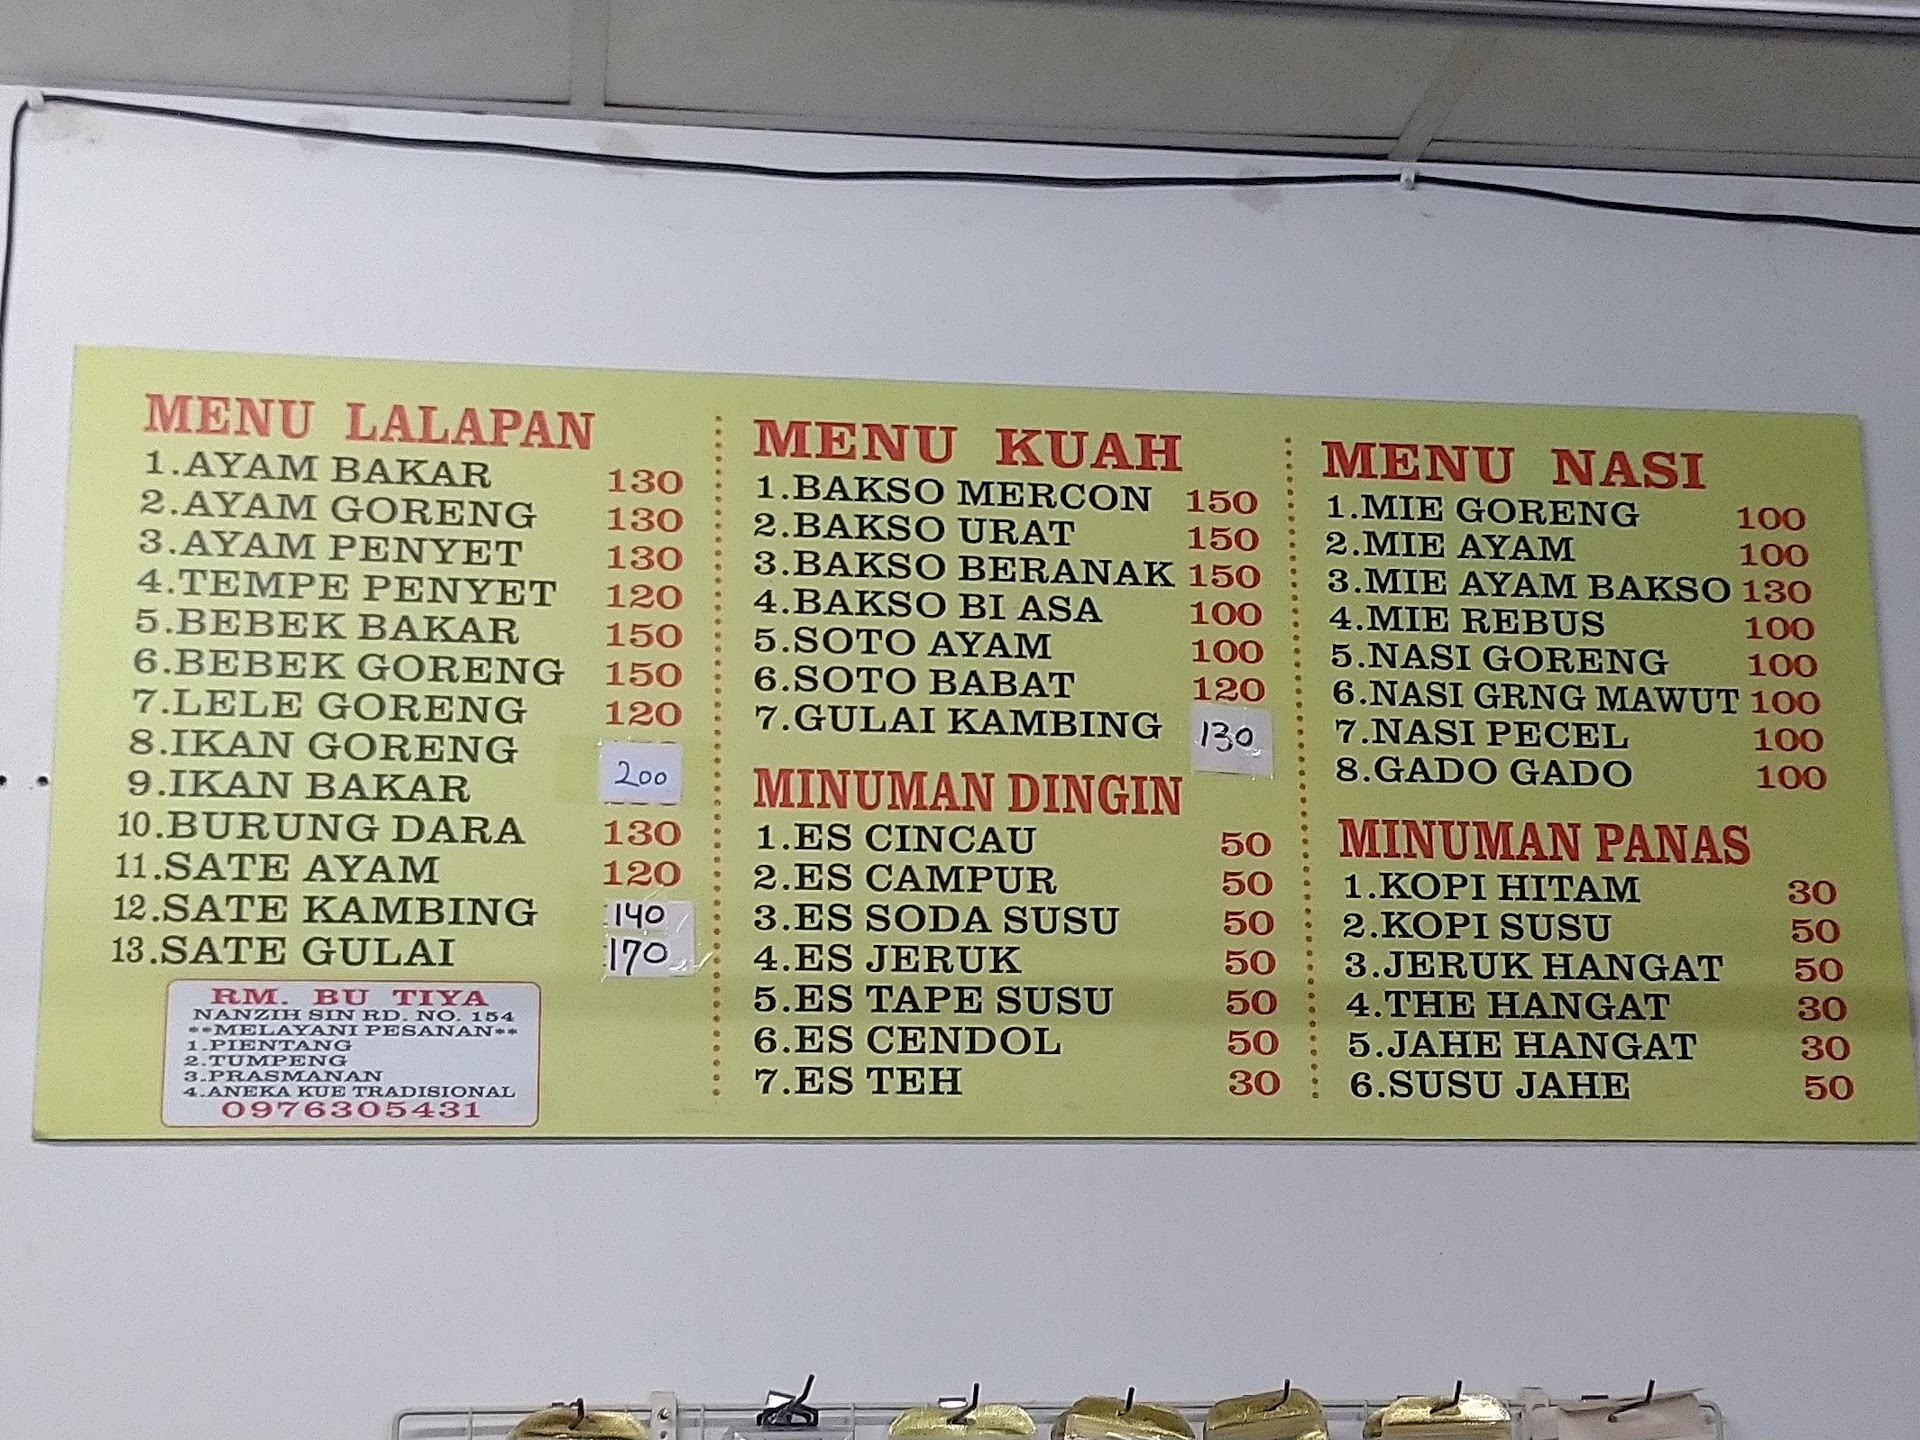 MENU LALAPAN
1.AYAM BAKAR 130
2.AYAM GORENG 130
3.AYAM PENYET 130
4.TEMPE PENYET 120
5.BEBEK BAKAR 150
6.BEBEK GORENG 150
7.LELE GORENG 120
8.IKAN GORENG
9.IKAN BAKAR 200
10.BURUNG DARA 130
11.SATE AYAM 120
12.SATE KAMBING 140
13.SATE GULAI 170
RM. BU TIYA
NANZIH SIN RD. NO. 154
**MELAYANI PESANAN**
1.PIENTANG
2.TUMPENG
3.PRASMANAN
4.ANEKA KUE TRADISIONAL
0976305431
MENU KUAH
1.BAKSO MERCON 150
2.BAKSO URAT 150
3.BAKSO BERANAK 150
4.BAKSO BI ASA 100
5.SOTO AYAM 100
6.SOTO BABAT 120
7.GULAI KAMBING 130
MINUMAN DINGIN
1.ES CINCAU 50
2.ES CAMPUR 50
3.ES SODA SUSU 50
4.ES JERUK 50
5.ES TAPE SUSU 50
6.ES CENDOL 50
7.ES TEH 30
MENU NASI
1.MIE GORENG 100
2.MIE AYAM 100
3.MIE AYAM BAKSO 130
4.MIE REBUS 100
5.NASI GORENG 100
6.NASI GRNG MAWUT 100
7.NASI PECEL 100
8.GADO GADO 100
MINUMAN PANAS
1.KOPI HITAM 30
2.KOPI SUSU 50
3.JERUK HANGAT 50
4.THE HANGAT 30
5.JAHE HANGAT 30
6.SUSU JAHE 50